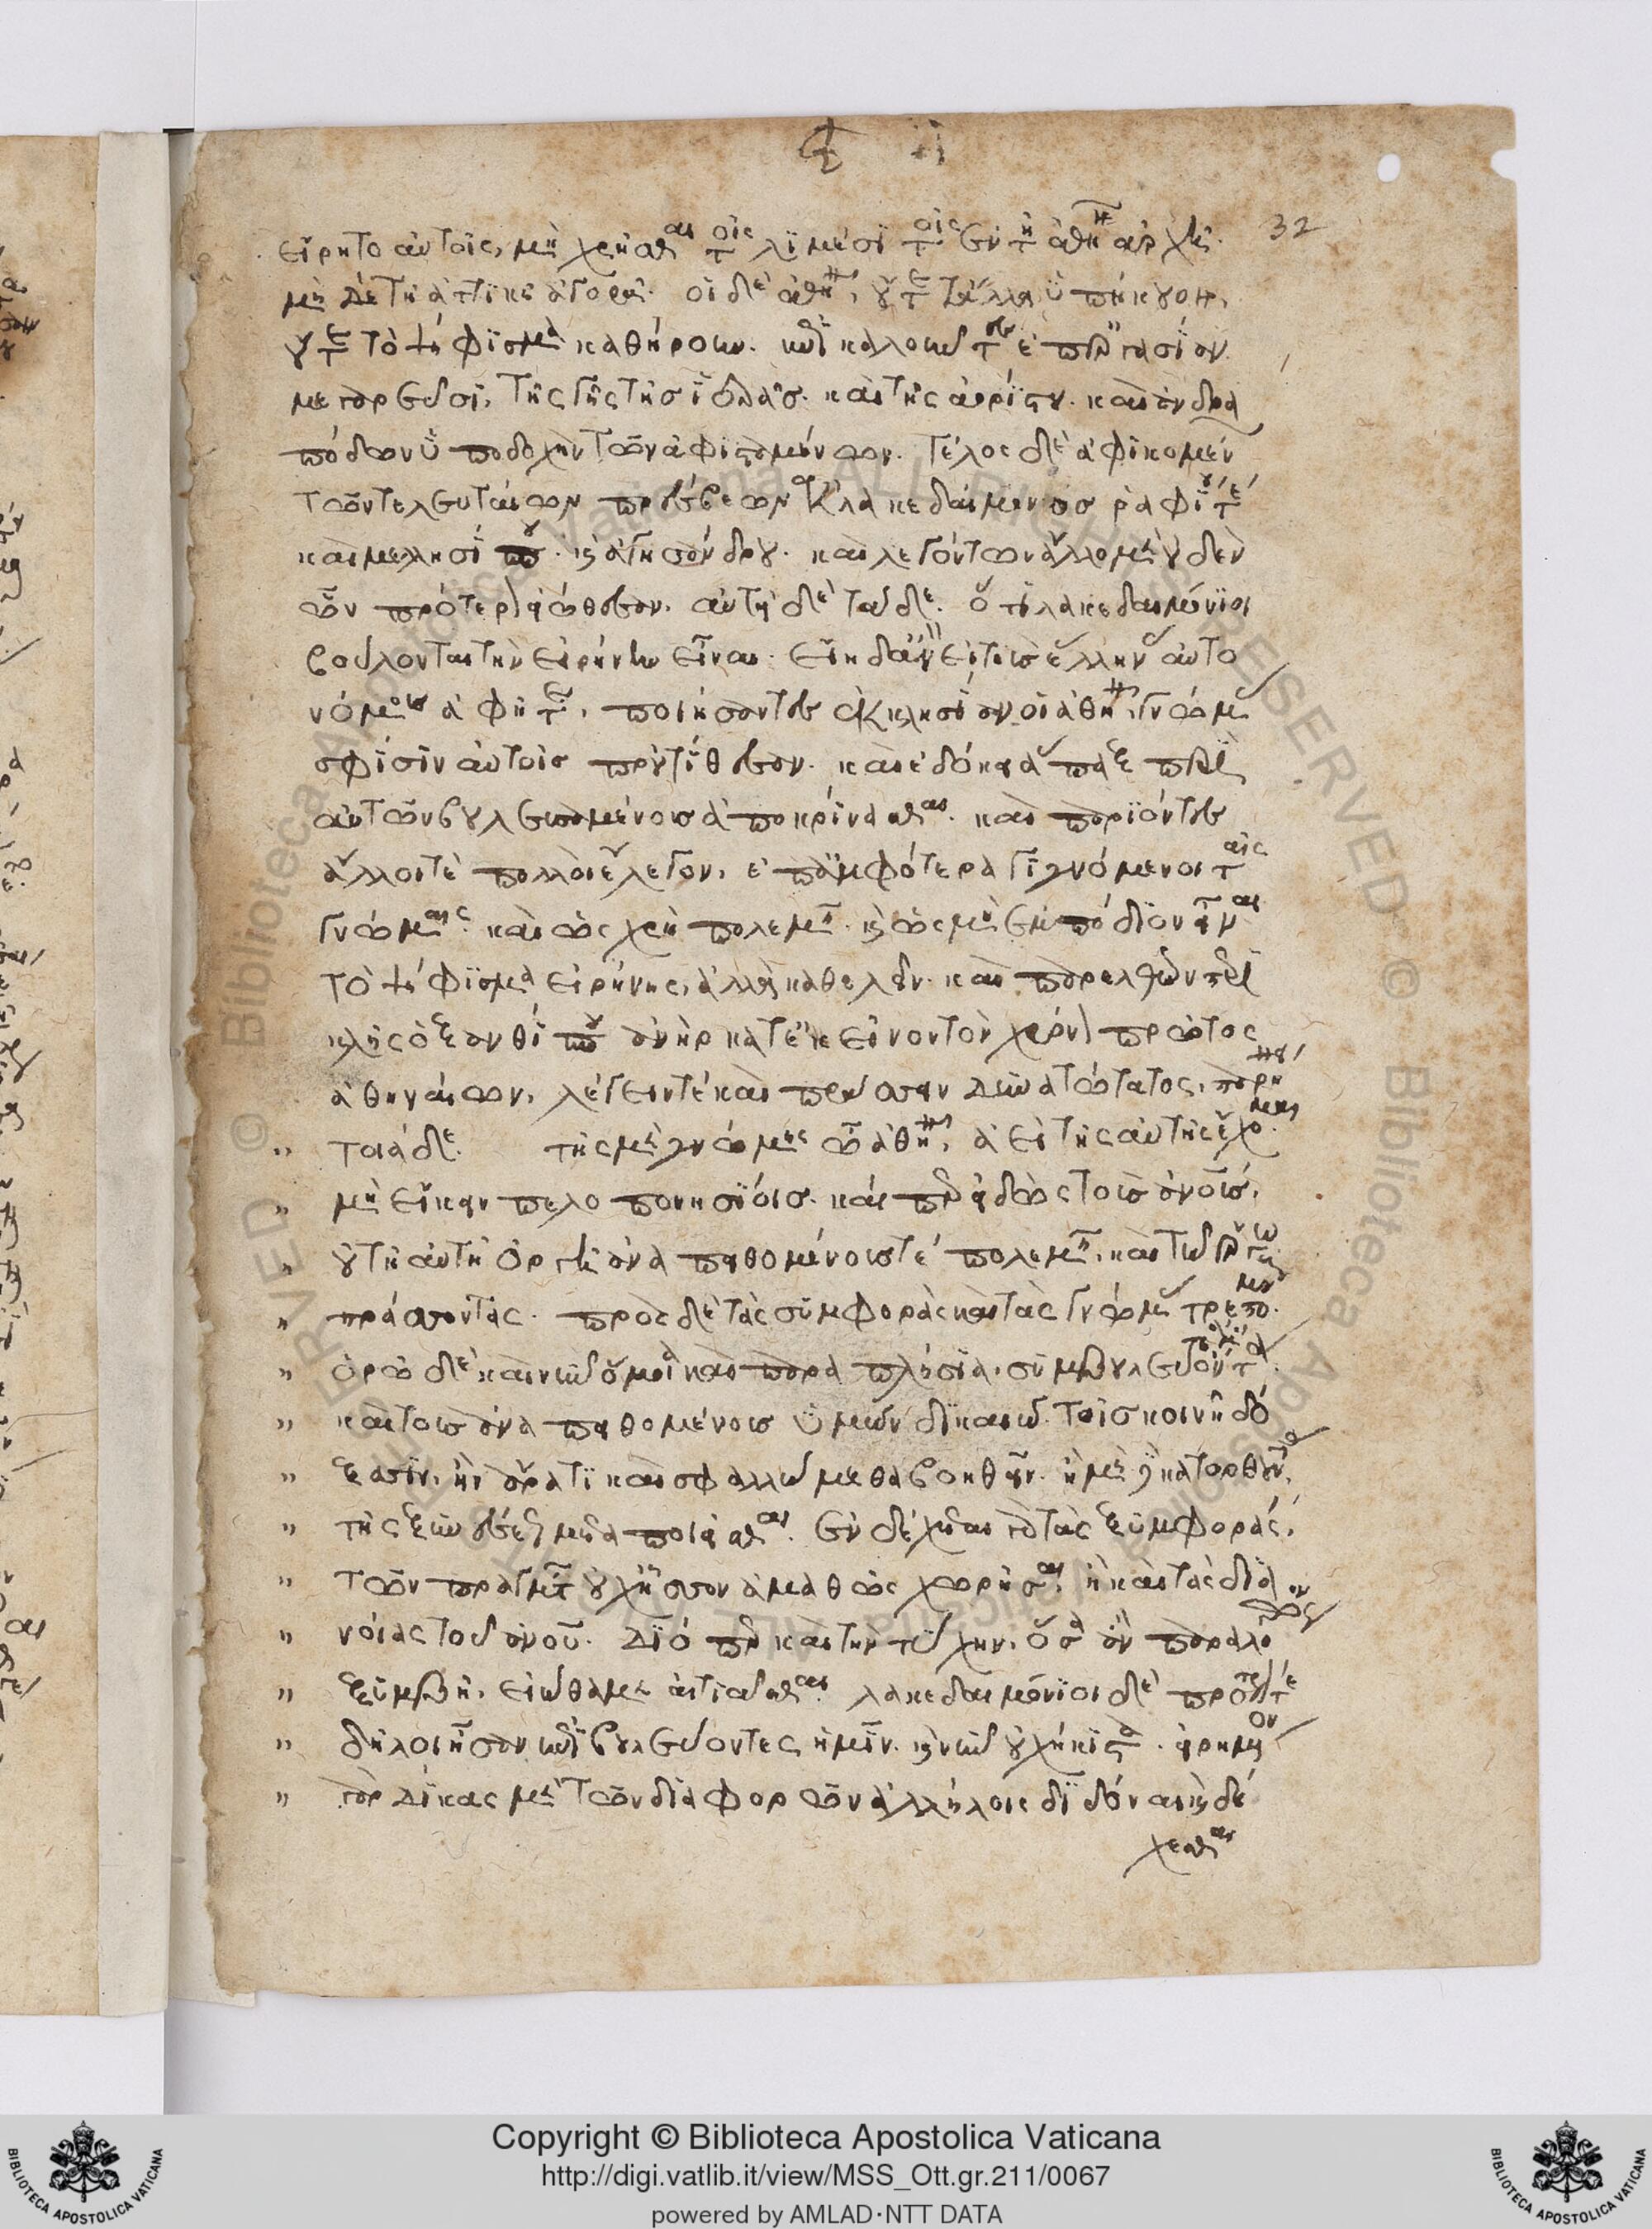 32
εἴρητο αὐτοῖς, μὴ χρῆσθαι τοῖς λιμέσι τοῖς ἐν τῇ ἀθηναίων ἀρχῇ.
μὴ δὲ τῇ ἀττικῇ ἀγορᾷ. οἱ δὲ ἀθηναῖοι, οὔτε τἄλλα ὑπήκουον,
οὔτε τὸ ψήφισμα καθῄρουν. ἐπικαλοῦντες ἐπεργασίαν
μεγαρεῦσι, τῆς γῆς τῆς ἱερᾶς. καὶ τῆς ἀορίστου. καὶ ἀνδρα
πόδων ὑποδοχὴν τῶν ἀφισταμένων. τέλος δὲ ἀφικομένων
τῶν τελευταίων πρέσβεων ἐκ λακεδαίμονος ραμφίου τέ
καὶ μελησίππου. καὶ ἀγησάνδρου. καὶ λεγόντων ἄλλο μὲν οὐδὲν
ὧν πρότερον εἰώθεσαν. αὐτὰ δὲ τάδε. ὅτι λακεδαιμόνιοι
βούλονται τὴν εἰρήνην εἶναι. εἴη δ' ἂν εἰ τοὺς ἕλληνας αὐτο
νόμους ἀφῆτε, ποιήσαντες ἐκκλησίαν οἱ ἀθηναῖοι, γνώμας
σφίσιν αὐτοῖς προὐτίθεσαν. καὶ ἐδόκει ἅπαξ περὶ
αὐτῶν βουλευσαμένους ἀποκρίνασθαι. καὶ παριόντες
ἄλλοι τὲ πολλοὶ ἔλεγον, ἐπ' ἀμφότερα γιγνόμενοι ταῖς
γνώμαις. καὶ ὡς χρὴ πολεμεῖν. καὶ ὡς μὴ ἐμπόδιον εἶναι
τὸ ψήφισμα εἰρήνης, ἀλλὰ καθελεῖν. καὶ παρελθὼν περι
κλῆς ὁ ξανθίππου ἀνὴρ κατ' ἐκεῖνον τὸν χρόνον πρῶτος
ἀθηναίων, λέγειν τὲ καὶ πράσσειν δυνατώτατος, παρῄνει
τοιάδε. τῆς μὲν γνώμης ὦ ἀθηναῖοι, ἀεὶ τῆς αὐτῆς ἔχομαι
μὴ εἴκειν πελοποννησίοις. καίπερ εἰδὼς τοὺς ἀνους,
οὐ τῇ αὐτῇ ὀργῇ ἀναπειθομένους τὲ πολεμεῖν, καὶ ἐν τῷ ἔργῳ
πράσσοντας. πρὸς δὲ τὰς συμφορὰς καὶ τὰς γνώμας τρεπομένους
ὁρῶ δὲ καὶ νῦν ὅμοια καὶ παραπλήσια, συμβουλευτέα
καὶ τοὺς ἀναπειθομένους ὑμῶν δικαιῶ τοῖς κοινῇ δό
ξασιν, ἢν ἄρα τι καὶ σφαλλώμεθα βοηθεῖν. ἢ μὴ δὲ κατορθοῦντας
τῆς ξυνέσεως μεταποιεῖσθαι. ἐνδέχεται γὰρ τὰς ξυμφοράς,
τῶν πραγμάτων οὐχ ἧσσον ἀμαθῶς χωρῆσαι, ἢ καὶ τὰς δια
νοίας τοῦ ἀνου. διόπερ καὶ τὴν τύχην, ὅσα ἂν παρὰ λόγον
ξυμβῇ, εἰώθαμεν αἰτιᾶσθαι. λακεδαιμόνιοι δὲ πρότερόν τε
δῆλοι ἦσαν ἐπιβουλεύοντες ἡμῖν. καὶ νῦν οὐχ ἥκιστα. εἰρημένον
γὰρ δίκας μὲν τῶν διαφορῶν ἀλλήλοις διδόναι καὶ δέ
χεσθαι
Copyright © Biblioteca Apostolica Vaticana
http://digi.vatlib.it/view/MSS_Ott.gr.211/0067
powered by AMLAD·NTT DATA